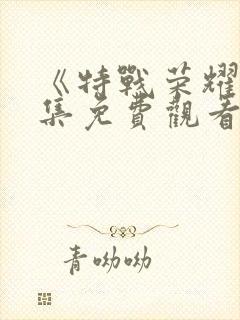 《特戰荣耀
集免費觀看
青呦呦